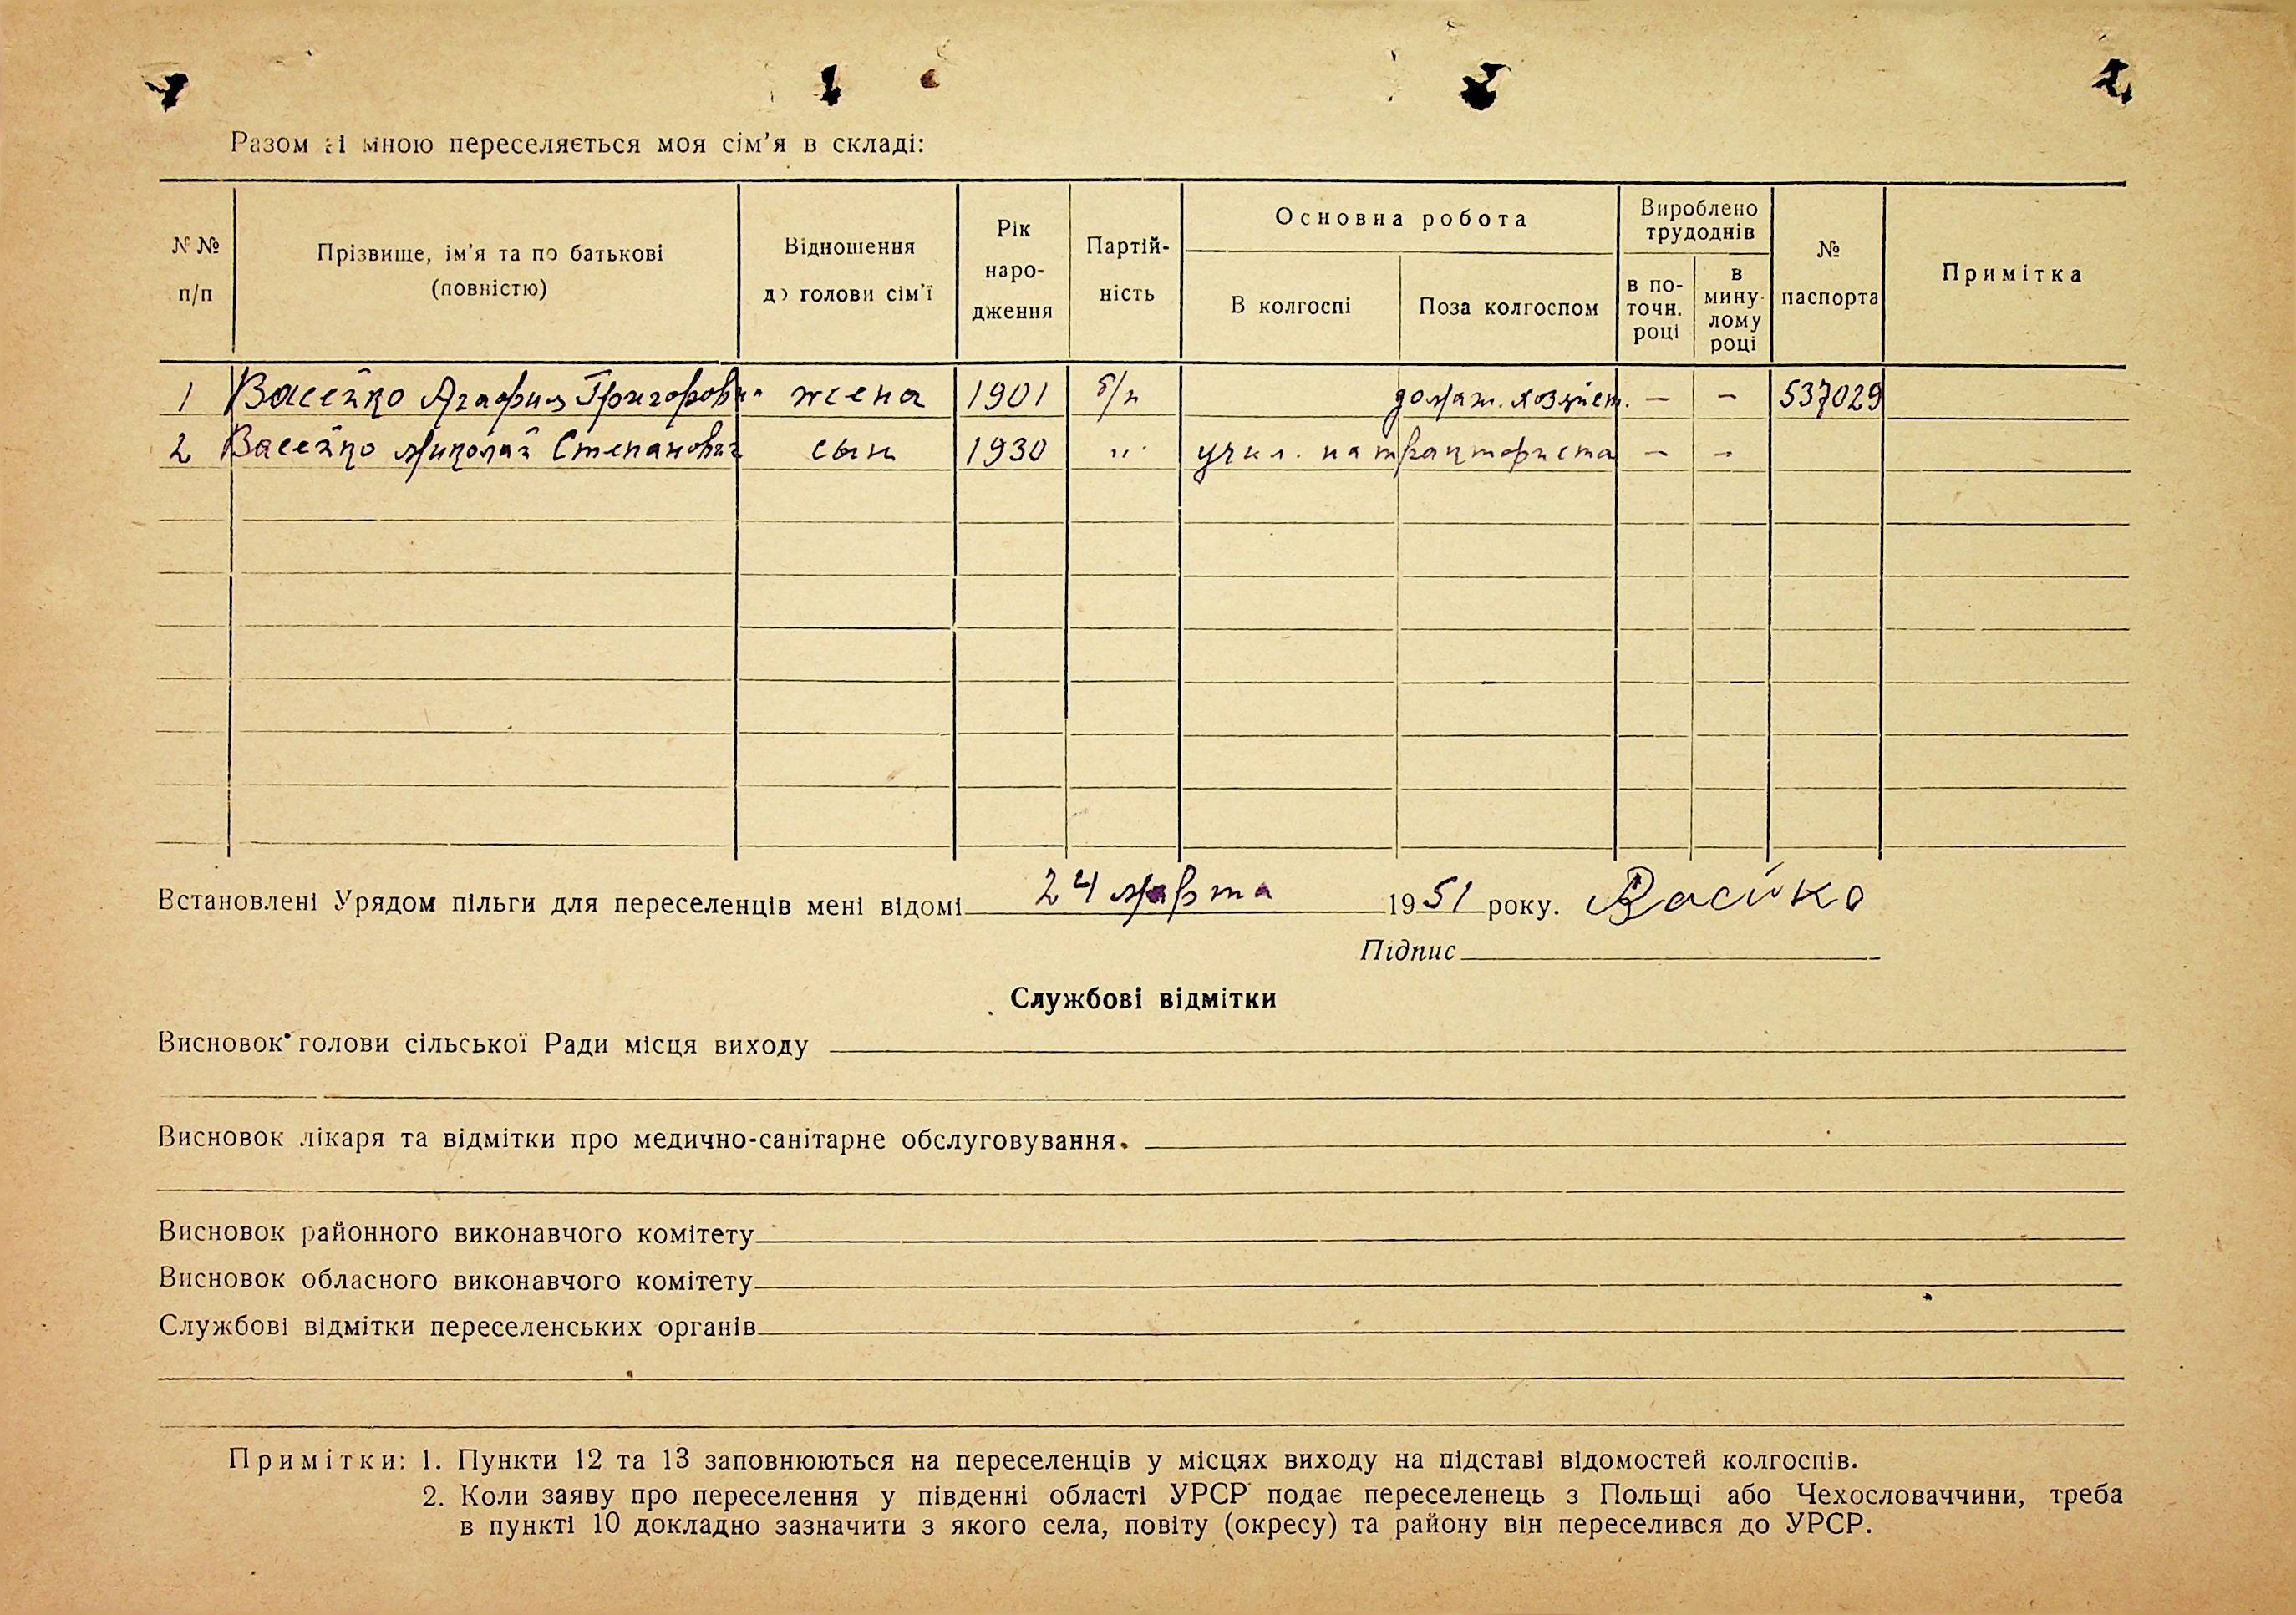 Разом зі мною переселяється моя сім’я в складі:
№ №
п/п
Прізвище, ім’я та по батькові
(повністю)
Відношення
до голови сім’ї
Рік
наро-
дження
Партій-
ність
Основна робота
В колгоспі
Поза колгоспом
Вироблено
трудоднів
в по-
точн.
році
в
мину-
лому
році
№
паспорта
Примітка
1 Васейко Агафия Григоровна жена 1901 б/п домаш. хозяйст. — — 537029
2 Васейко Николай Степанович сын 1930 " учил. на тракториста — —
Встановлені Урядом пільги для переселенців мені відомі 24 марта 1951 року. Васийко
Підпис
Службові відмітки
Висновок голови сільської Ради місця виходу
Висновок лікаря та відмітки про медично-санітарне обслуговування.
Висновок районного виконавчого комітету
Висновок обласного виконавчого комітету
Службові відмітки переселенських органів
Примітки: 1. Пункти 12 та 13 заповнюються на переселенців у місцях виходу на підставі відомостей колгоспів.
2. Коли заяву про переселення у південні області УРСР подає переселенець з Польщі або Чехословаччини, треба
в пункті 10 докладно зазначити з якого села, повіту (окресу) та району він переселився до УРСР.